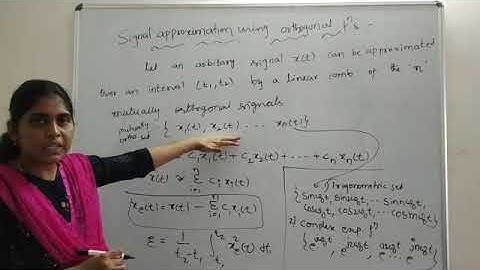 Signal approximation using orthogonal fⁿ's -
Let an arbitrary signal x(t) can be approximated
over an interval (t₁, t₂) by a linear comb of the 'n'
mutually orthogonal signals
mutually ortho set { x₁(t), x₂(t) - - - - xₙ(t)}
c₁x₁(t) + c₂x₂(t) + - - - + cₙ xₙ(t)
x(t) ≈ Σⁿᵢ₌₁ cᵢ xᵢ(t)
xₑ(t) = x(t) - Σⁿᵢ₌₁ cᵢ xᵢ(t)
ε = 1/(t₂-t₁) ∫ₜ₁ᵗ² xₑ²(t) dt
Trigonometric set
{sinω₀t, sin2ω₀t, ... sinnω₀t
cosω₀t, cos2ω₀t, ... cosnω₀t}
2) Complex exp. fⁿ